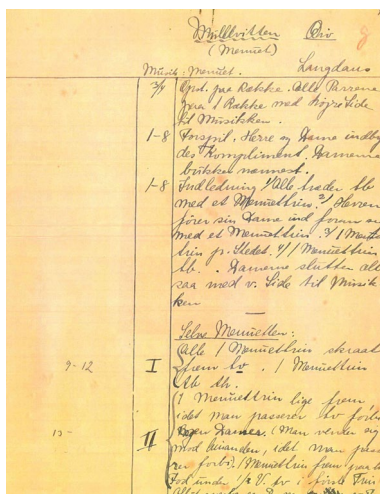 Mallvitten Div 8
(Menuet)
Langdans
Musik: Menuet.
3/4 Opst. paa Række. Alle Parrene
paa 1 Række med højre Side
til Musikken.
1-8 Forspil. Herre og Dame
des Kompliment. Damerne
nærmest.
1-8 Indledning 1/ Alle træder tb
med et Menuettrin. 2/ Herren
fører sin Dame ind foran
med et Menuettrin. 3/ 1
trin p. Stedet. 4/ 1 Menuettrin
tb. . Damerne slutter
saa med v. Side til Musik
ken
Selve Menuetten:
Alle 1 Menuettrin skraat
9-12 I frem tv. 1 Menuettrin
tb th.
1 Menuettrin lige frem,
idet man passerer tv forbi
13- Damer. (Man vender sig
II mod hinanden, idet man
forbi. 1 Menuettrin frem
Fod under 1/2 V. tv i første Trin